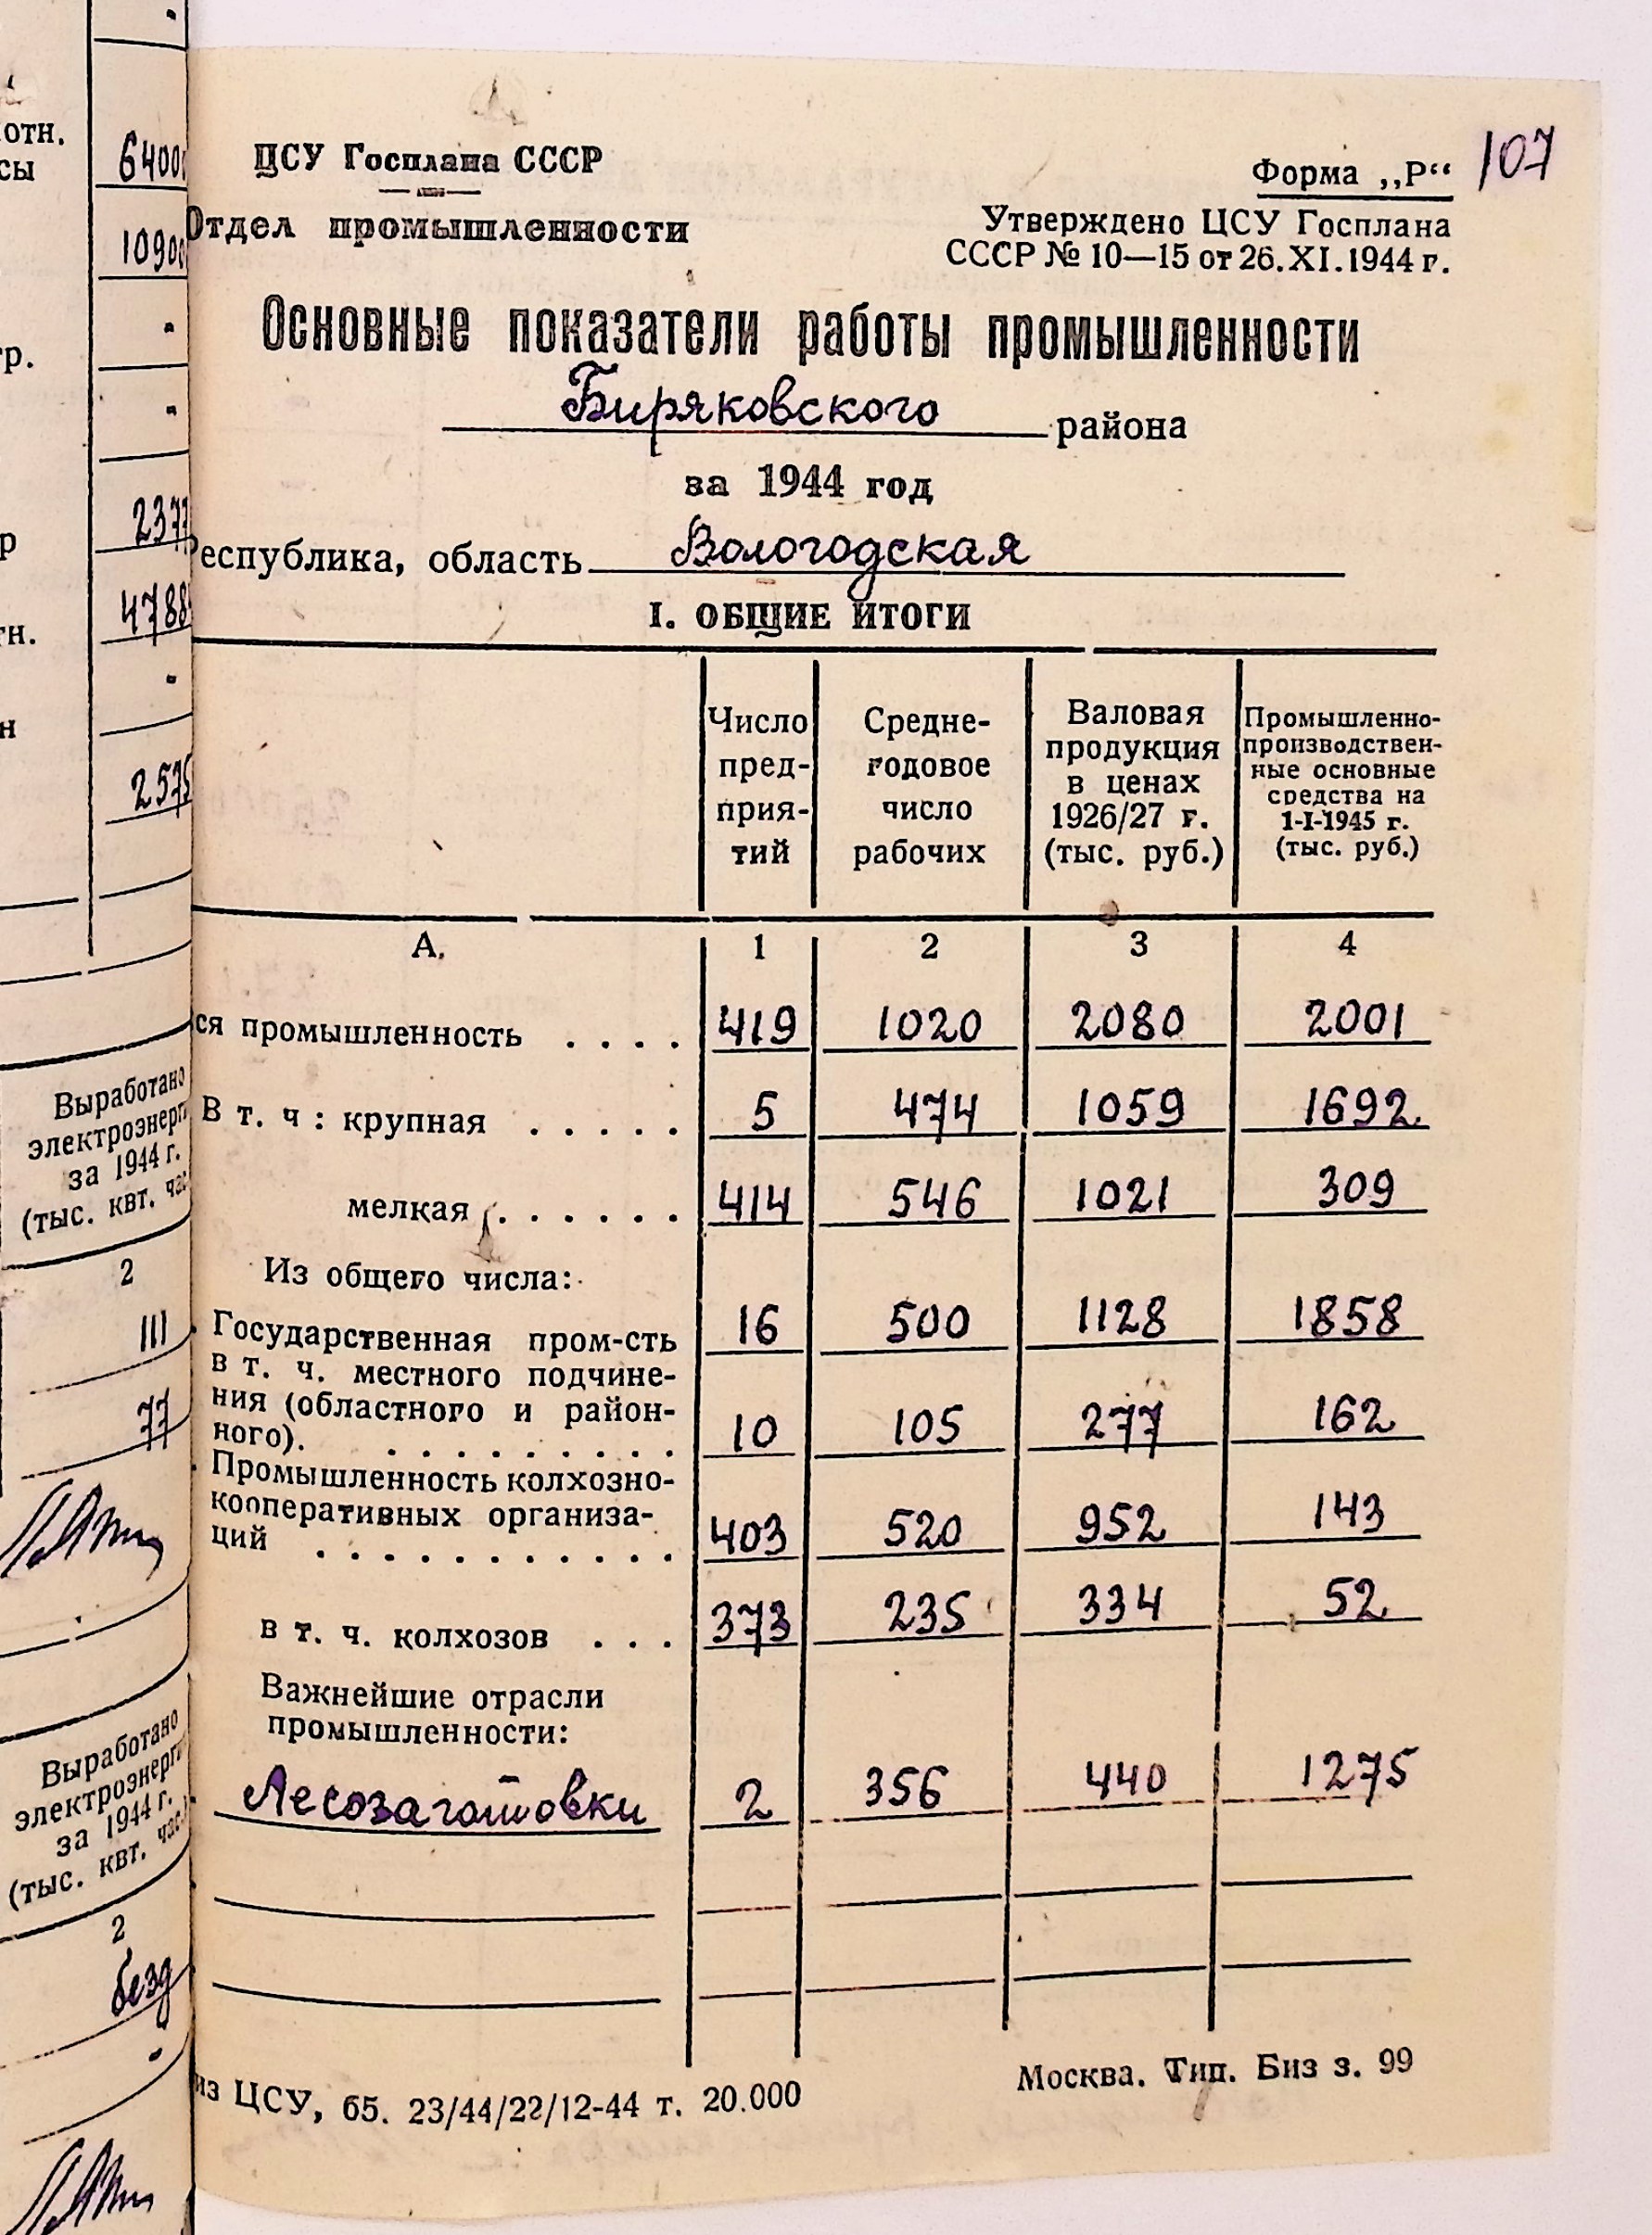 ЦСУ Госплана СССР
Отдел промышленности
Форма „Р“ 107
Утверждено ЦСУ Госплана
СССР № 10—15 от 26.XI.1944 г.
Основные показатели работы промышленности
Биряковского района
за 1944 год
Республика, область Вологодская
I. ОБЩИЕ ИТОГИ
Число предприятий
Средне-годовое число рабочих
Валовая продукция в ценах 1926/27 г. (тыс. руб.)
Промышленно-производственные основные средства на 1-I-1945 г. (тыс. руб.)
А. 1 2 3 4
ся промышленность . . . . 419 1020 2080 2001
В т. ч : крупная . . . . . 5 474 1059 1692
мелкая . . . . . . 414 546 1021 309
Из общего числа:
Государственная пром-сть 16 500 1128 1858
в т. ч. местного подчине-
ния (областного и район-
ного). . . . . . . . . . 10 105 277 162
Промышленность колхозно-
кооперативных организа-
ций . . . . . . . . . . . 403 520 952 143
в т. ч. колхозов . . . 373 235 334 52
Важнейшие отрасли
промышленности:
Лесозаготовки 2 356 440 1275
из ЦСУ, б5. 23/44/22/12-44 т. 20.000
Москва. Тип. Биз з. 99
отн.
сы
6400
1090
гр.
р
237
тн.
4788
н
2575
Выработано
электроэнерг
за 1944 г.
(тыс. квт. час
2
111
77
Выработано
электроэнерги
за 1944 г.
(тыс. квт. час.
2
безд